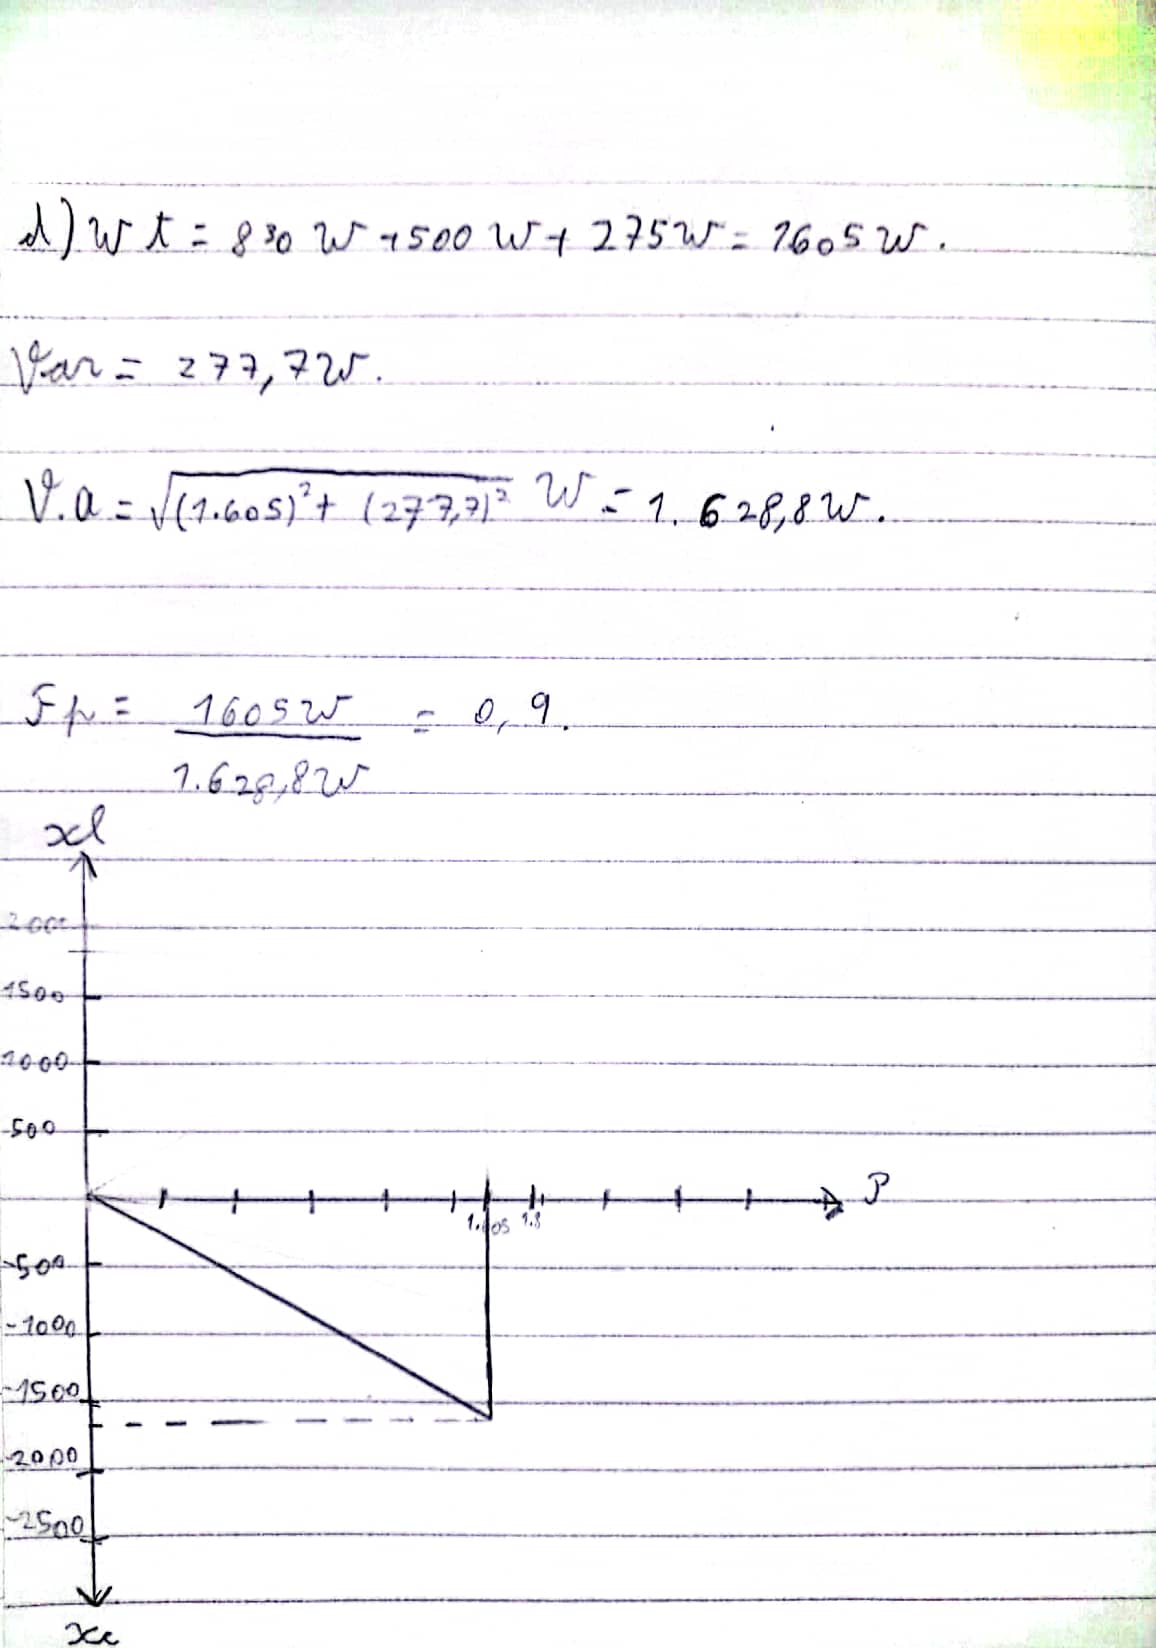 d) W t = 830 W + 500 W + 275 W = 1605 W.
Var = 277,7 W.
V.a = √(1.605)² + (277,7)² W = 1.628,8 W.
Fp = 1605 W = 0,9.
1.628,8 W
xl
2000
1500
1000
500
P
1.605 1.8
-500
-1000
-1500
-2000
-2500
xc